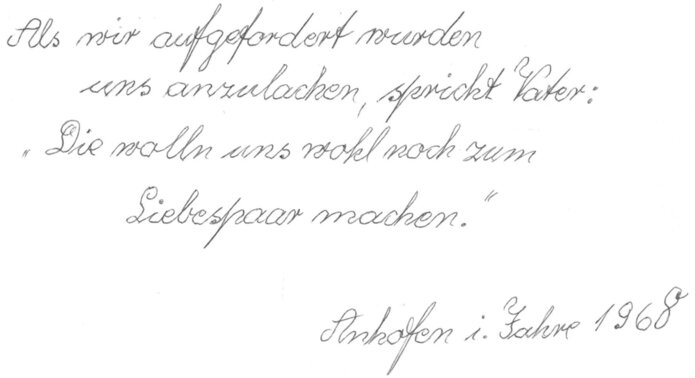 Als wir aufgefordert wurden
uns anzulachen, spricht Vater:
„Die wolln uns wohl noch zum
Liebespaar machen."
Anhofen i. Jahre 1968